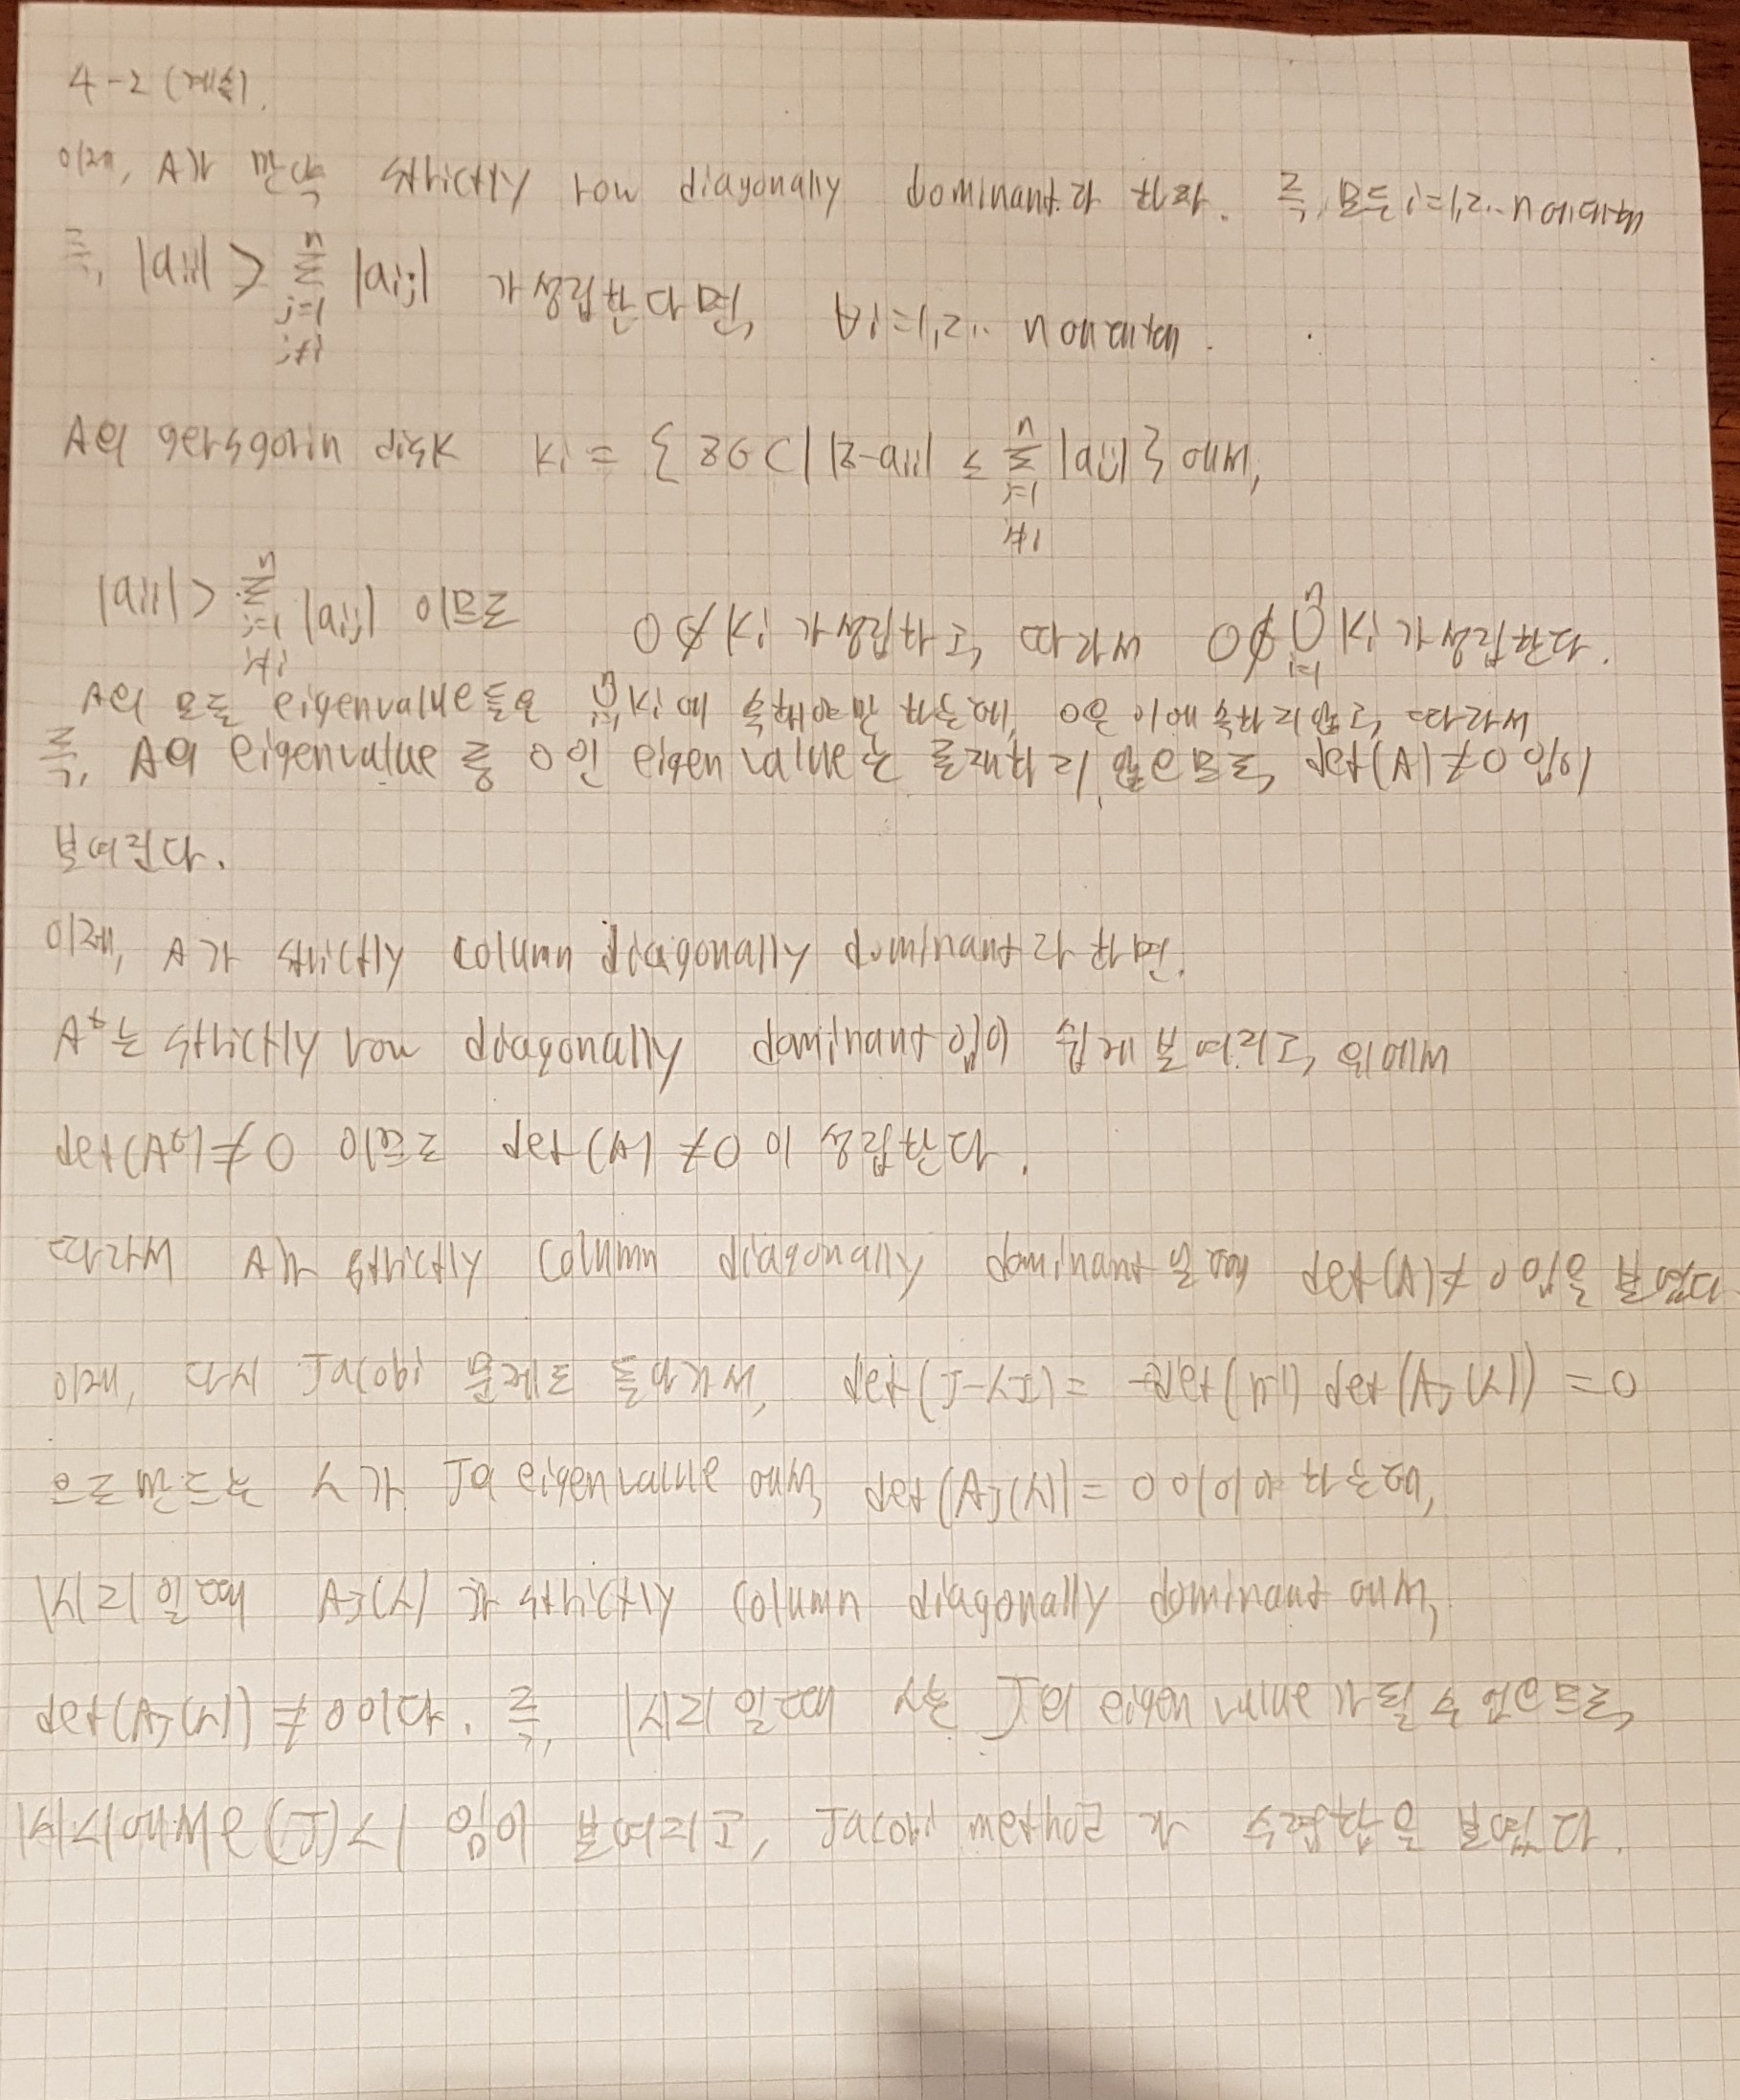 4-2 (계속).
이제, A가 만약 strictly row diagonally dominant라 하자. 즉, 모든 i=1,2,.. n에대해
즉, |aii| > n∑j=1 j≠i |aij| 가 성립한다면, ∀i=1,2,.. n에대해.
A의 gersgorin disk Ki = { z∈C | |z-aii| ≤ n∑j=1 j≠i |aij| } 에서,
|aii| > n∑j=1 j≠i |aij| 이므로 0∉Ki 가 성립하고, 따라서 0∉ n∪i=1 Ki 가 성립한다.
A의 모든 eigenvalue들은 n∪i=1 Ki에 속해야만 하는데, 0은 이에 속하지 않고, 따라서
즉, A의 eigenvalue 중 0인 eigenvalue는 존재하지 않으므로, det(A)≠0 임이
보여진다.
이제, A가 strictly column diagonally dominant라 하면.
A*는 strictly row diagonally dominant임이 쉽게 보여지고, 위에서
det(A*)≠0 이므로 det(A) ≠0 이 성립한다.
따라서 A가 strictly column diagonally dominant일때 det(A)≠0 임을 보였다
이제, 다시 Jacobi 문제로 돌아가서, det(J-λI)= -det(M-1) det(AJ(λ)) = 0
으로 만드는 λ가 J의 eigenvalue 에서, det(AJ(λ)) = 0 이어야 하는데,
|λ|≥1 일때 AJ(λ) 가 strictly column diagonally dominant 에서,
det(AJ(λ)) ≠0이다. 즉, |λ|≥1 일때 λ는 J의 eigen value가 될 수 없으므로,
|λ|<1에서 ρ(J)<1 임이 보여지고, Jacobi method 가 수렴함을 보였다.